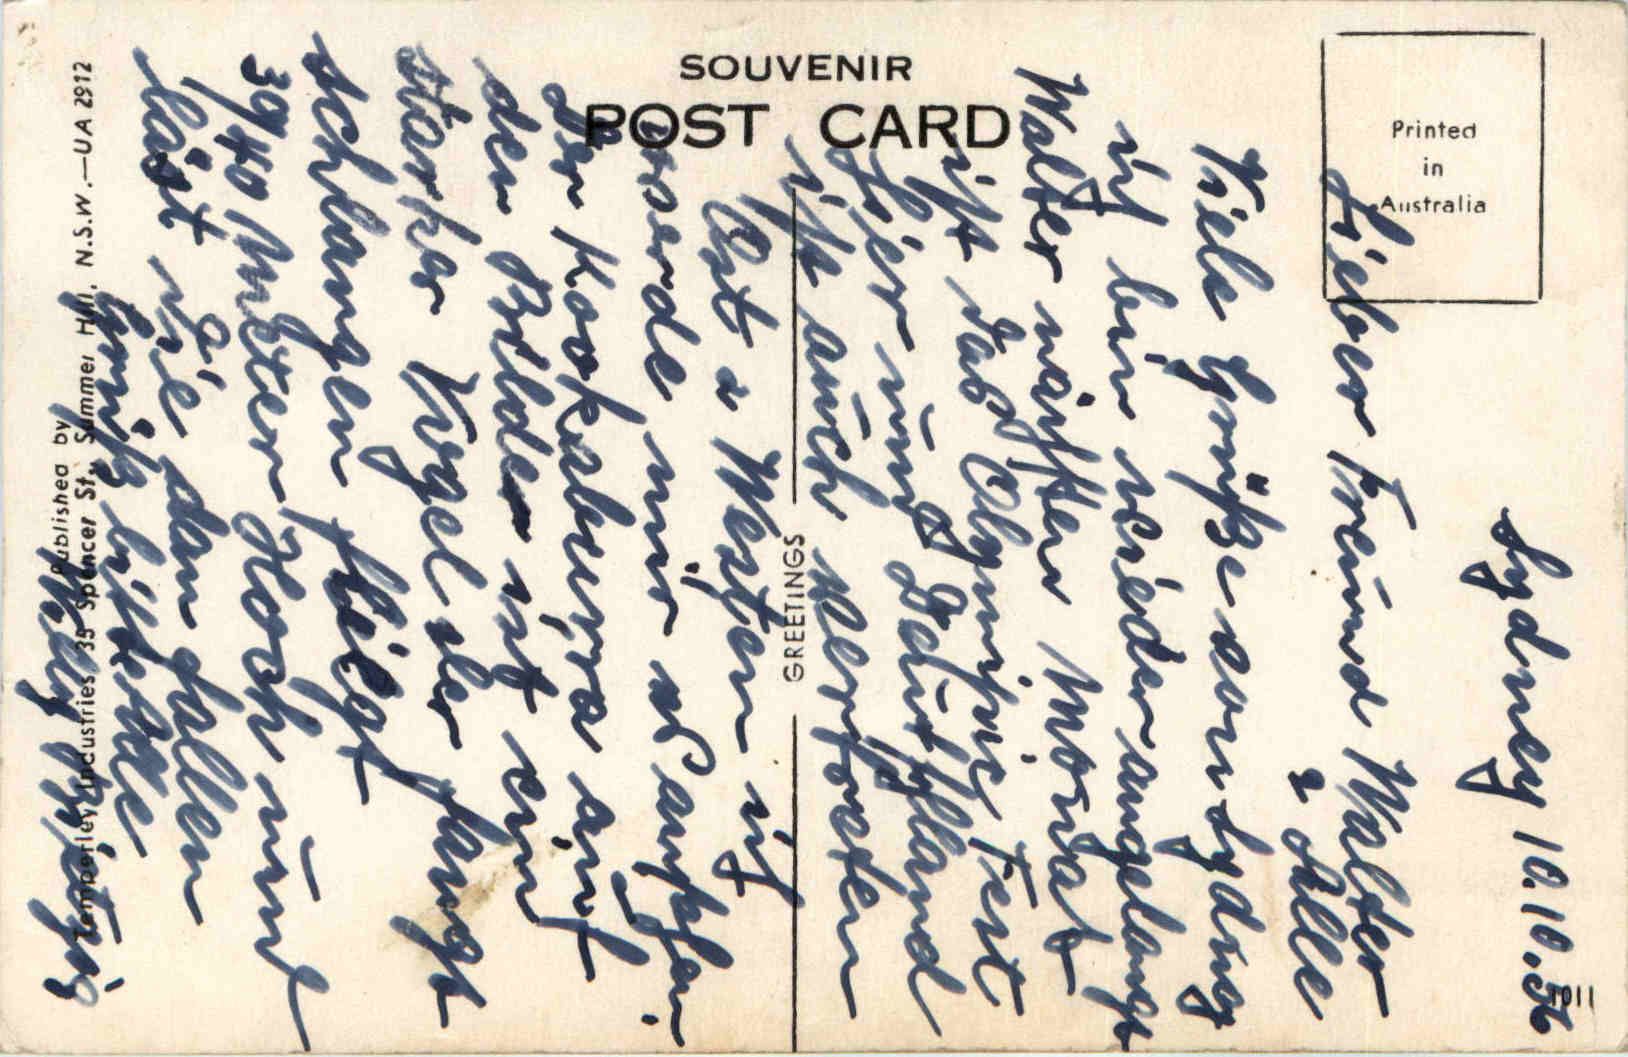 SOUVENIR
POST CARD
Printed
in
Australia
GREETINGS
Published by
Temperley Industries, 35 Spencer St., Summer Hill, N.S.W.—UA 2912
1011
Sydney 10.10.56
Lieber Freund Walter
& Alle
Viele Grüße von Sydney
ich bin wieder angelangt
Walter nächsten Monat
ist das Olympic Fest
Hier und Deutschland
ist auch vertreten
Ost & Westen ich
werde mir
der Kookaburra auf
den Bilde ist ein
starker Vogel der fangt
schlangen fliegt
39/40 Meter Hoch und
läst sie dan fallen
Gruß bitte alle
Willy